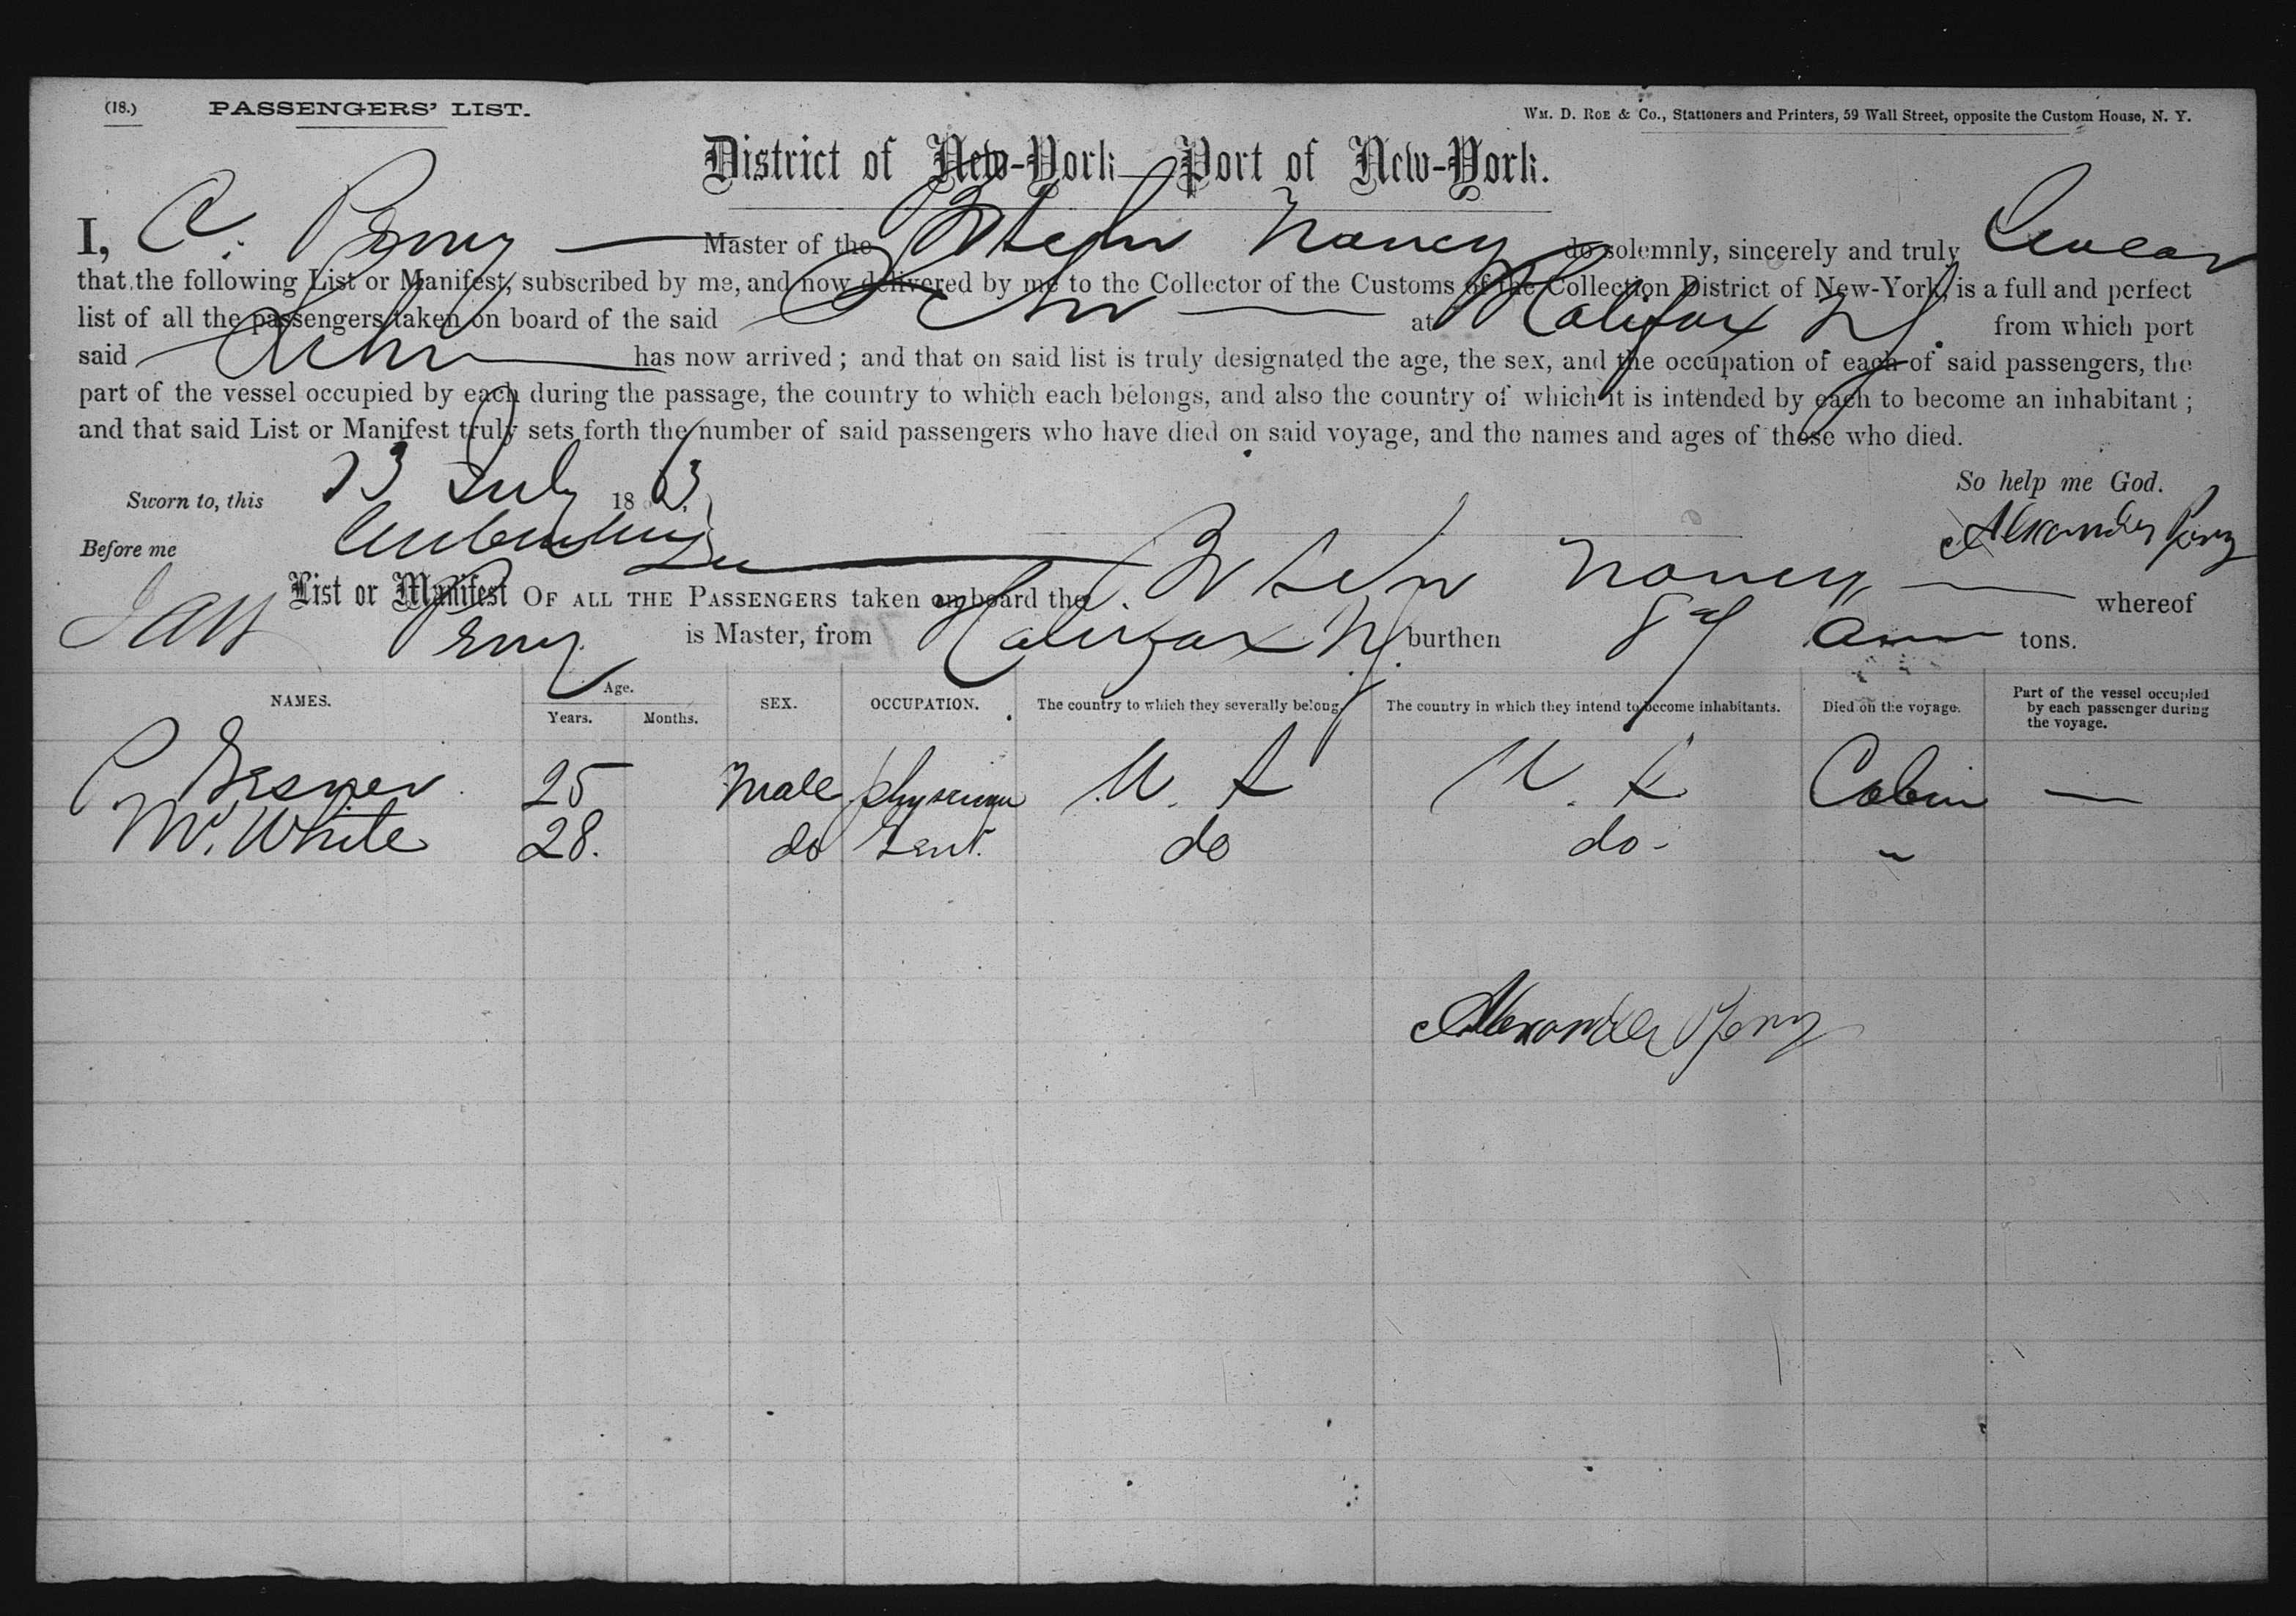 (18.) PASSENGERS' LIST. Wm. D. Roe & Co., Stationers and Printers, 59 Wall Street, opposite the Custom House, N. Y.
District of New-York—Port of New-York.
I, Master of the Nancy do solemnly, sincerely and truly swear
that the following List or Manifest, subscribed by me, and now delivered by me to the Collector of the Customs of the Collection District of New-York, is a full and perfect
list of all the passengers taken on board of the said Schr at Halifax from which port
said Schr has now arrived; and that on said list is truly designated the age, the sex, and the occupation of each of said passengers, the
part of the vessel occupied by each during the passage, the country to which each belongs, and also the country of which it is intended by each to become an inhabitant;
and that said List or Manifest truly sets forth the number of said passengers who have died on said voyage, and the names and ages of those who died.
So help me God.
Sworn to, this 13 July 1863
Alexander
Before me
List or Manifest OF ALL THE PASSENGERS taken on board the Nancy whereof
is Master, from Halifax burthen tons.
NAMES. Age. Years. Months. SEX. OCCUPATION. The country to which they severally belong. The country in which they intend to become inhabitants. Died on the voyage. Part of the vessel occupied by each passenger during the voyage.
25 Male physician Cabin —
M. White 28. do Gent. do do -
Alexander